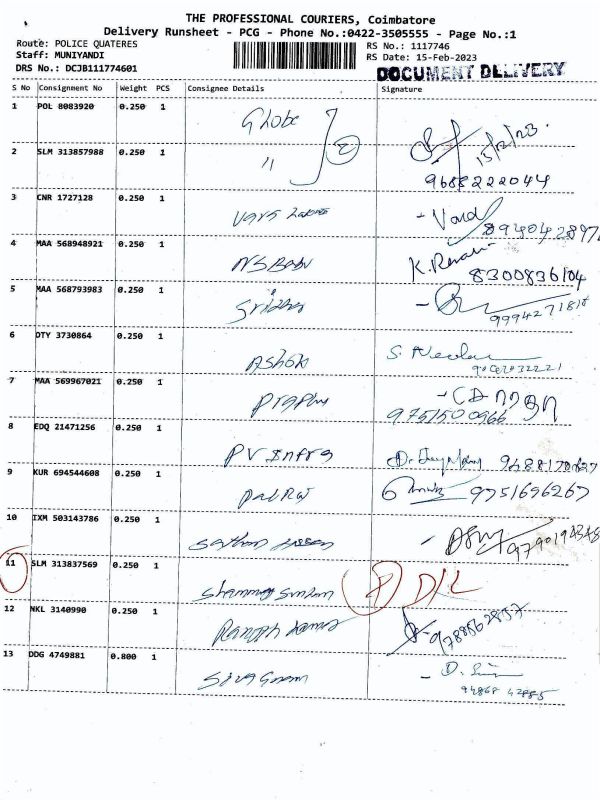 THE PROFESSIONAL COURIERS, Coimbatore
Delivery Runsheet - PCG - Phone No.:0422-3505555 - Page No.:1
Route: POLICE QUATERES
Staff: MUNIYANDI
DRS No.: DCJB111774601
RS No.: 1117746
RS Date: 15-Feb-2023
DOCUMENT DELIVERY
S No Consignment No Weight PCS Consignee Details Signature
1 POL 8083920 0.250 1 Globe
15/2/23
2 SLM 313857988 0.250 1 "
2
9688222044
3 CNR 1727128 0.250 1
4 MAA 568948921 0.250 1 NS Babu K.
8300836104
5 MAA 568793983 0.250 1 Sridhar
9994271818
6 DTY 3730864 0.250 1 Ashok S.
7 MAA 569967021 0.250 1 Prabhu
9751500966
8 EDQ 21471256 0.250 1 PV Infra
9688170627
9 KUR 694544608 0.250 1 Pal Raj 9751696267
10 IXM 503143786 0.250 1
11 SLM 313837569 0.250 1 D/L
12 NKL 3140990 0.250 1
9788562837
13 DDG 4749881 0.800 1 D.
94868 42885